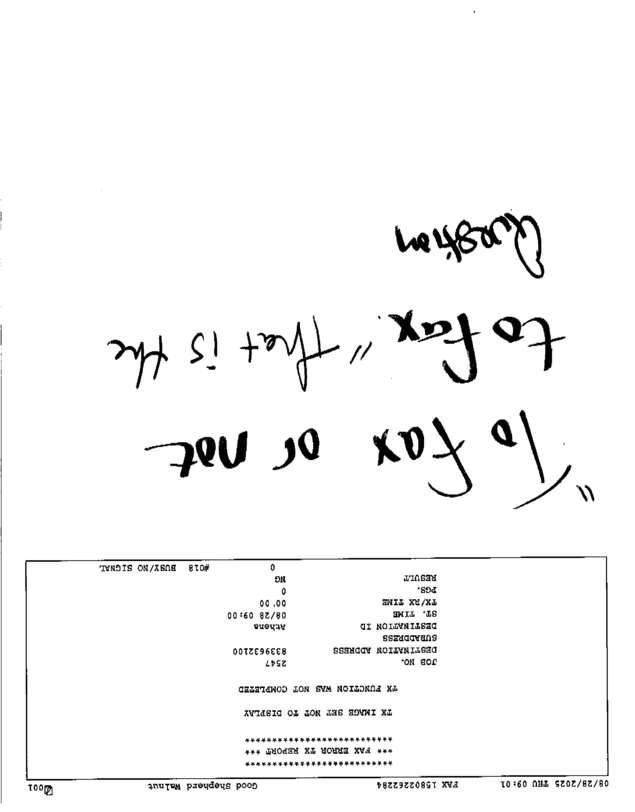 08/28/2025 THU 09:01 FAX 15803262284 Good Shepherd Walnut 001
***************************
*** FAX ERROR TX REPORT ***
***************************
TX IMAGE SET NOT TO DISPLAY
TX FUNCTION WAS NOT COMPLETED
JOB NO. 2547
DESTINATION ADDRESS 8339632100
SUBADDRESS
DESTINATION ID Athena
ST. TIME 08/28 09:00
TX/RX TIME 00'00
PGS.
RESULT NG
0 #018 BUSY/NO SIGNAL
"To fax or not
to fax." That is the
Question